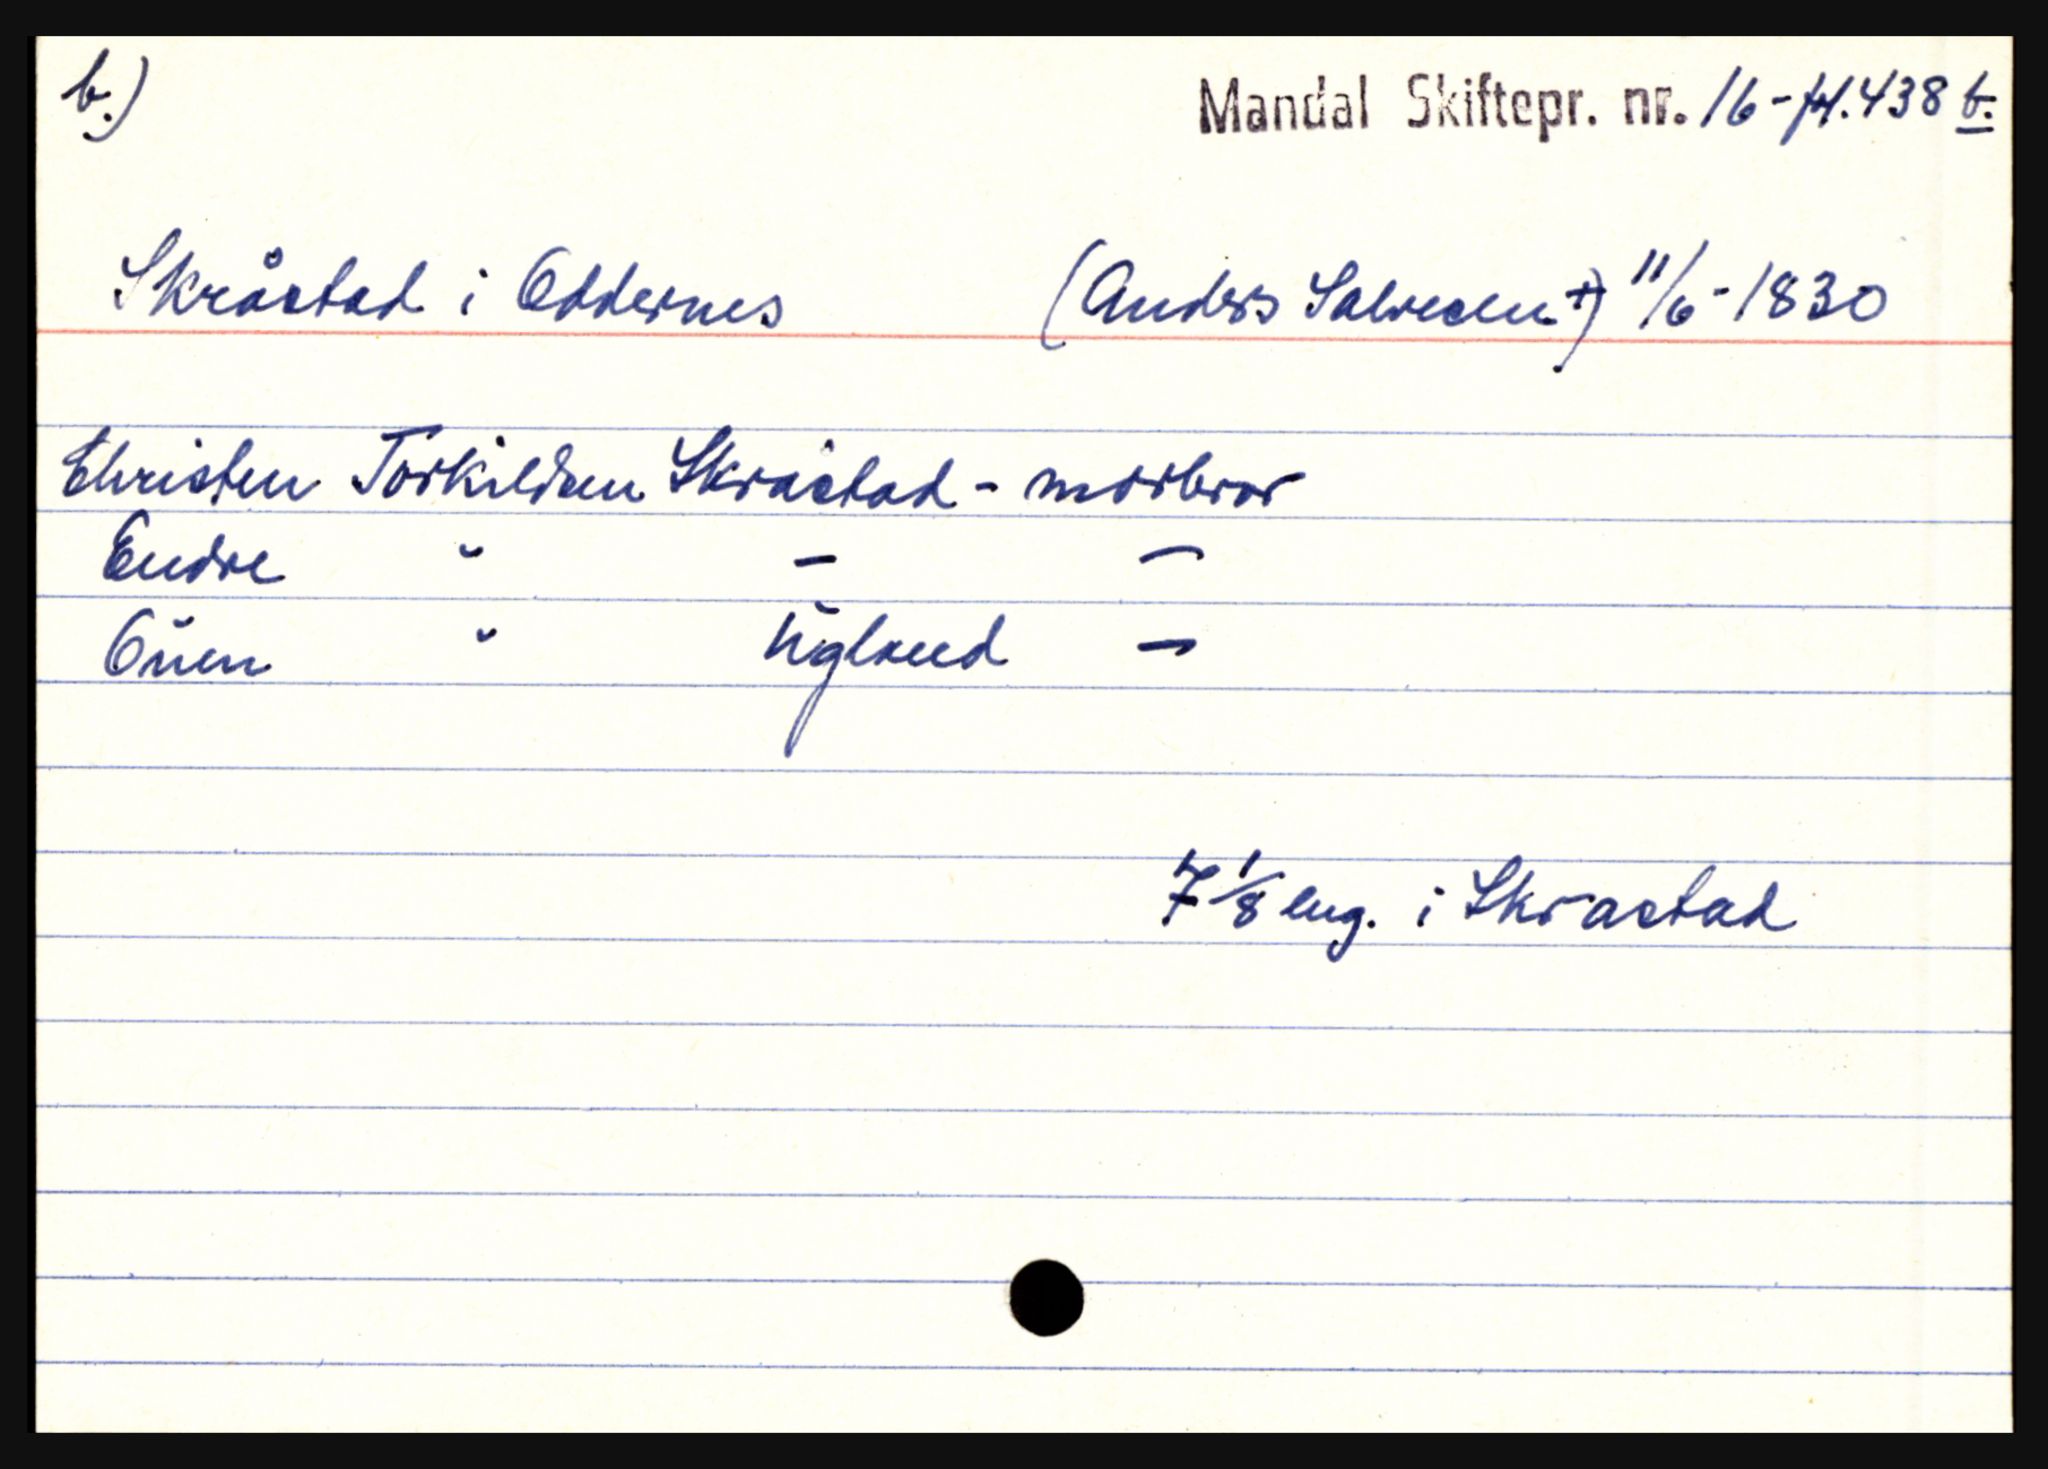 b.) Mandal Skiftepr. nr. 16 - fol. 438 b.
Skråstad i Oddernes (Anders Salvesen †) 11/6 - 1830
Christen Torkildsen Skråstad - morbror
Endre " - -
Ouen " Ugland -
7 1/8 eng. i Skrastad